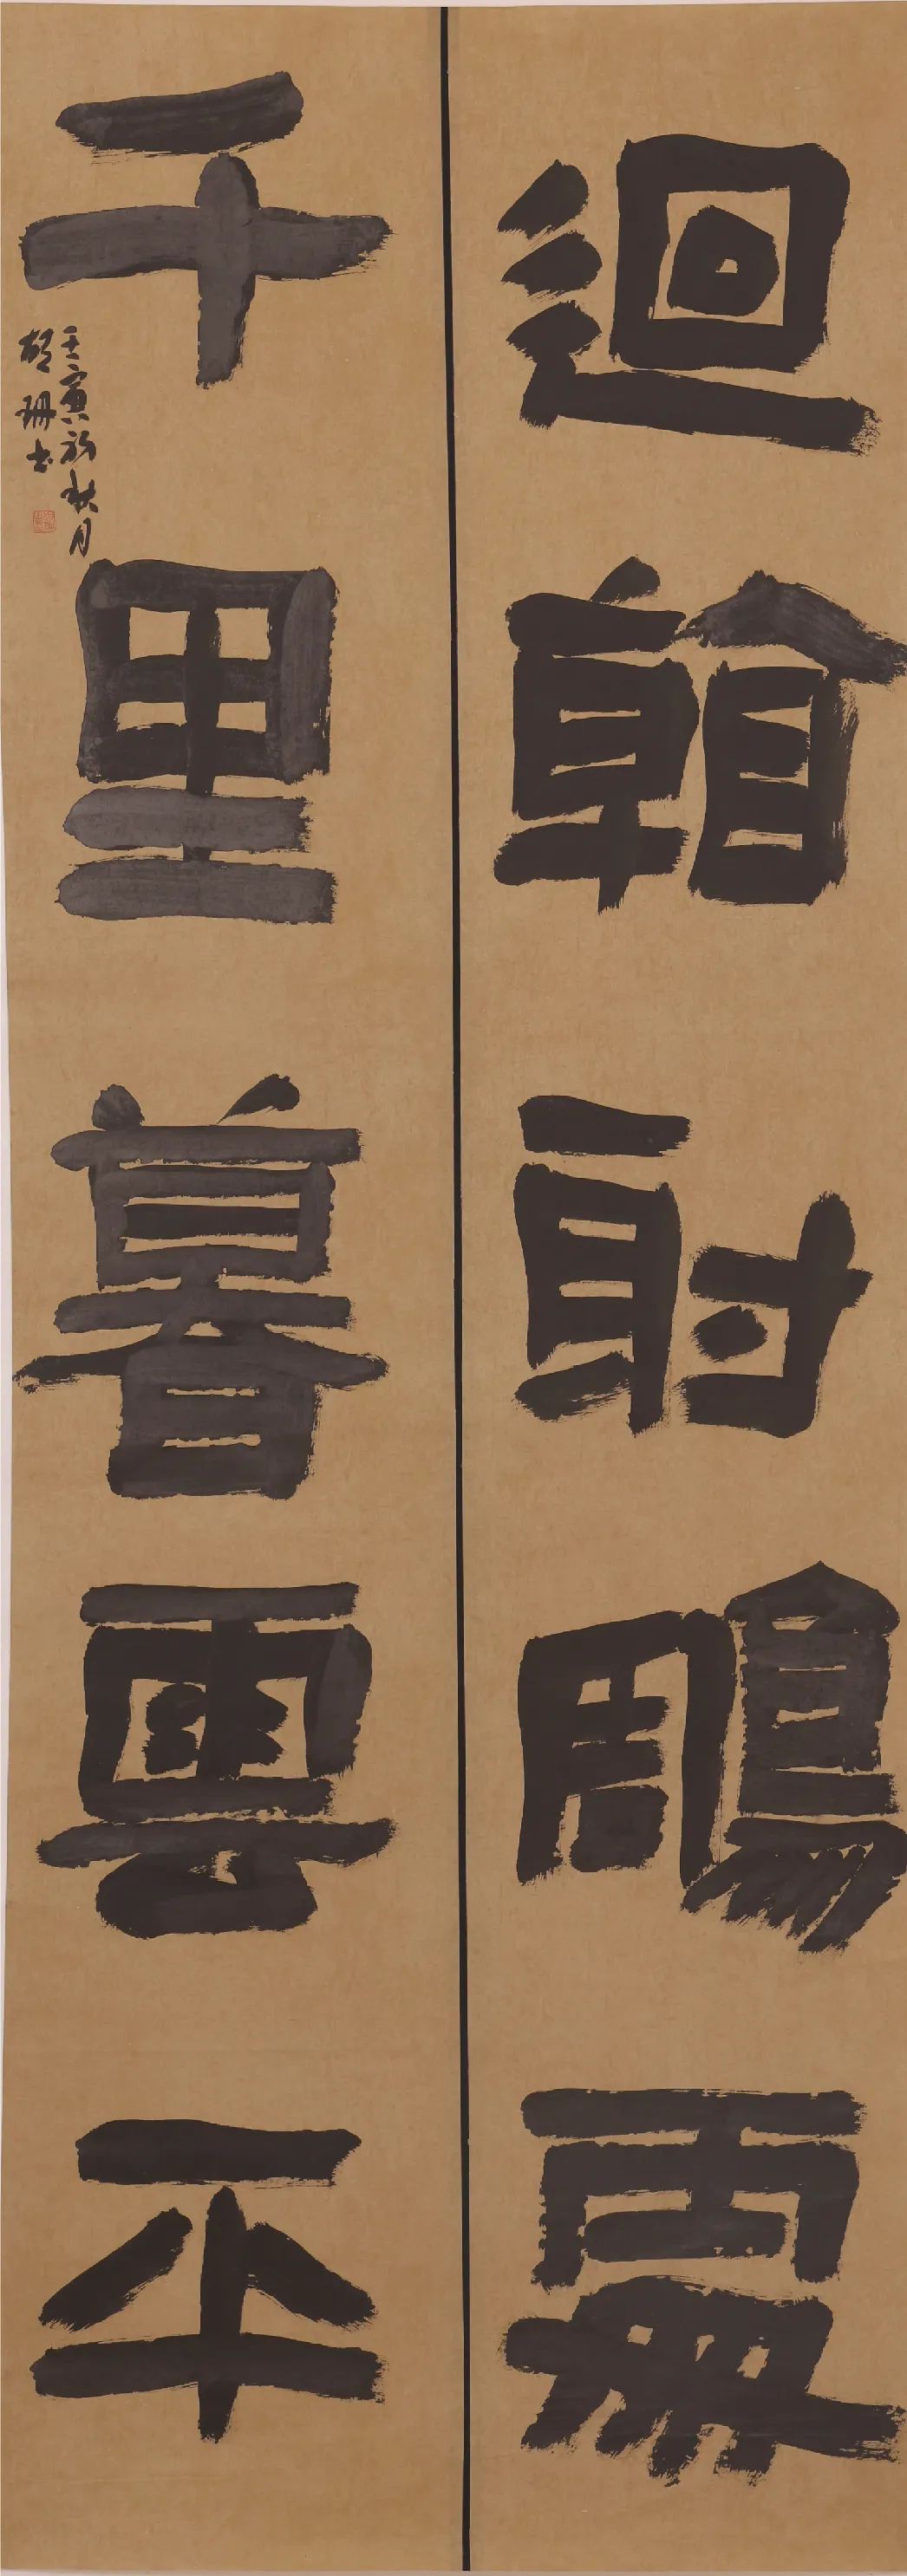 迴看射鵰處
千里暮雲平
壬寅初秋月
胡珊书